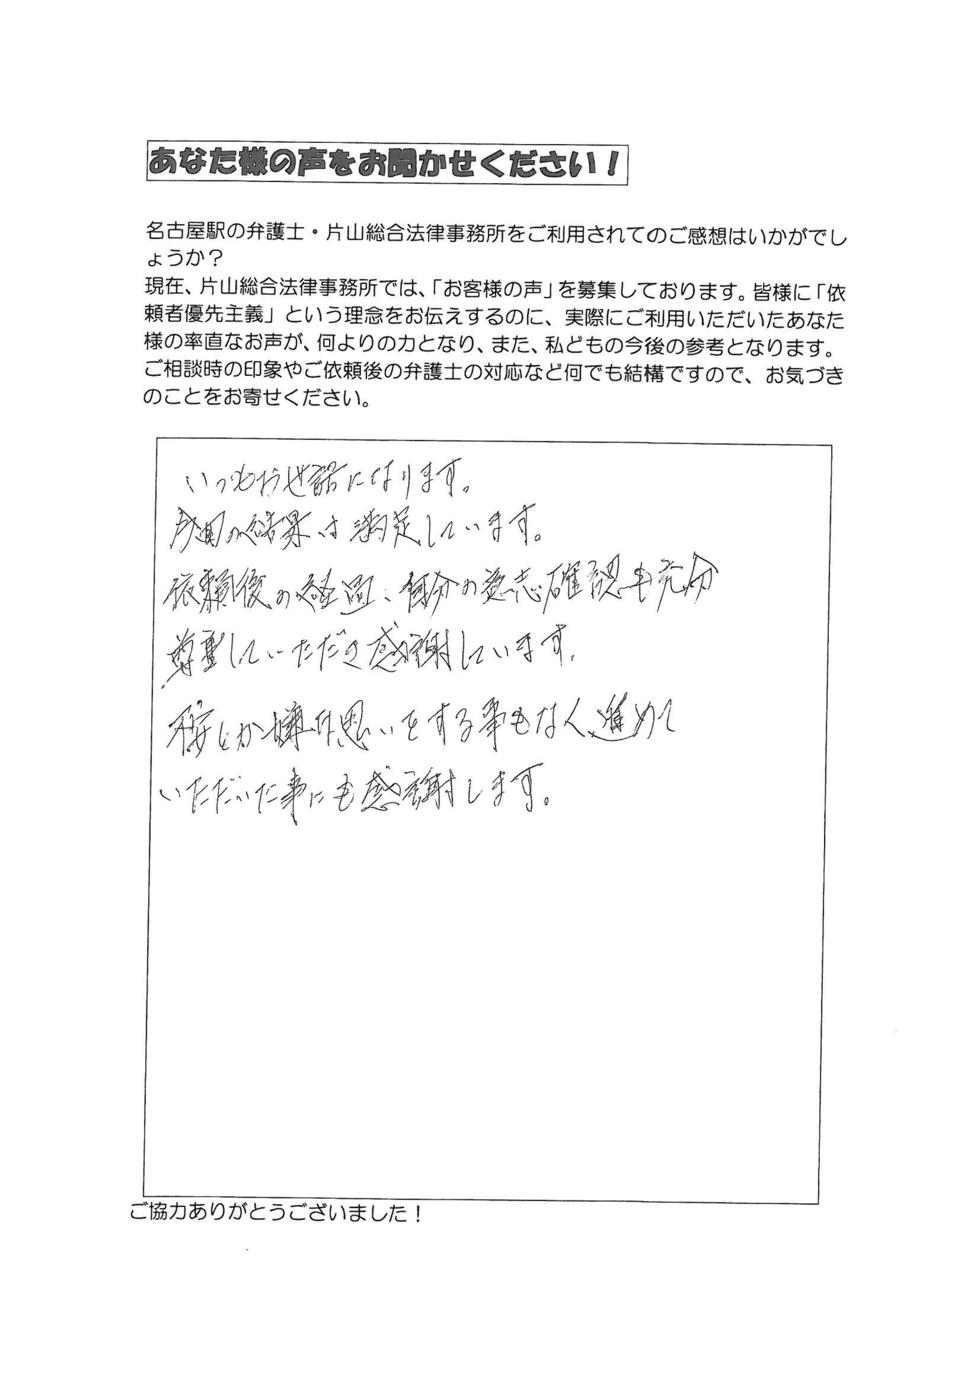 あなた様の声をお聞かせください！
名古屋駅の弁護士・片山総合法律事務所をご利用されてのご感想はいかがでし
ょうか？
現在、片山総合法律事務所では、「お客様の声」を募集しております。皆様に「依
頼者優先主義」という理念をお伝えするのに、実際にご利用いただいたあなた
様の率直なお声が、何よりの力となり、また、私どもの今後の参考となります。
ご相談時の印象やご依頼後の弁護士の対応など何でも結構ですので、お気づき
のことをお寄せください。
いつもお世話になります。
今回の結果は満足しています。
依頼後の経過、自分の意志確認も充分
尊重していただき感謝しています。
とか嫌な思いをする事もなく、進めて
いただいた事にも感謝します。
ご協力ありがとうございました！